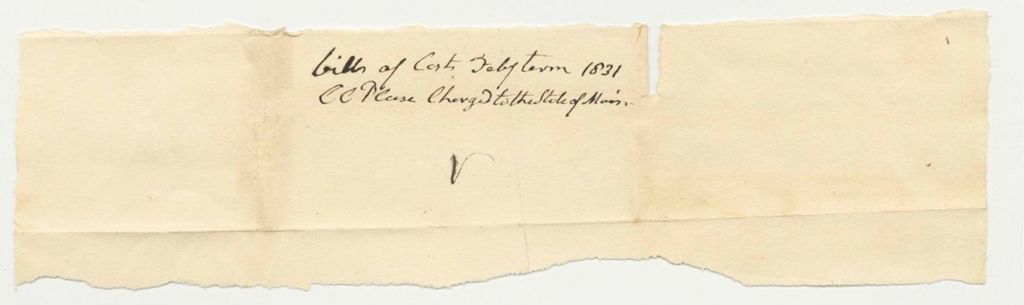 bills of Costs Feby term 1831
CC Pleas Charged to the State of Main.